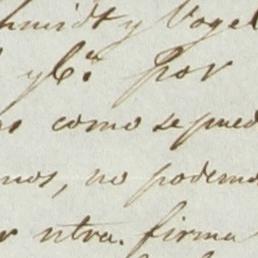 hmidt y Vogel
y Cª. por
como se pued
mos, no podemo
r ntra. firma